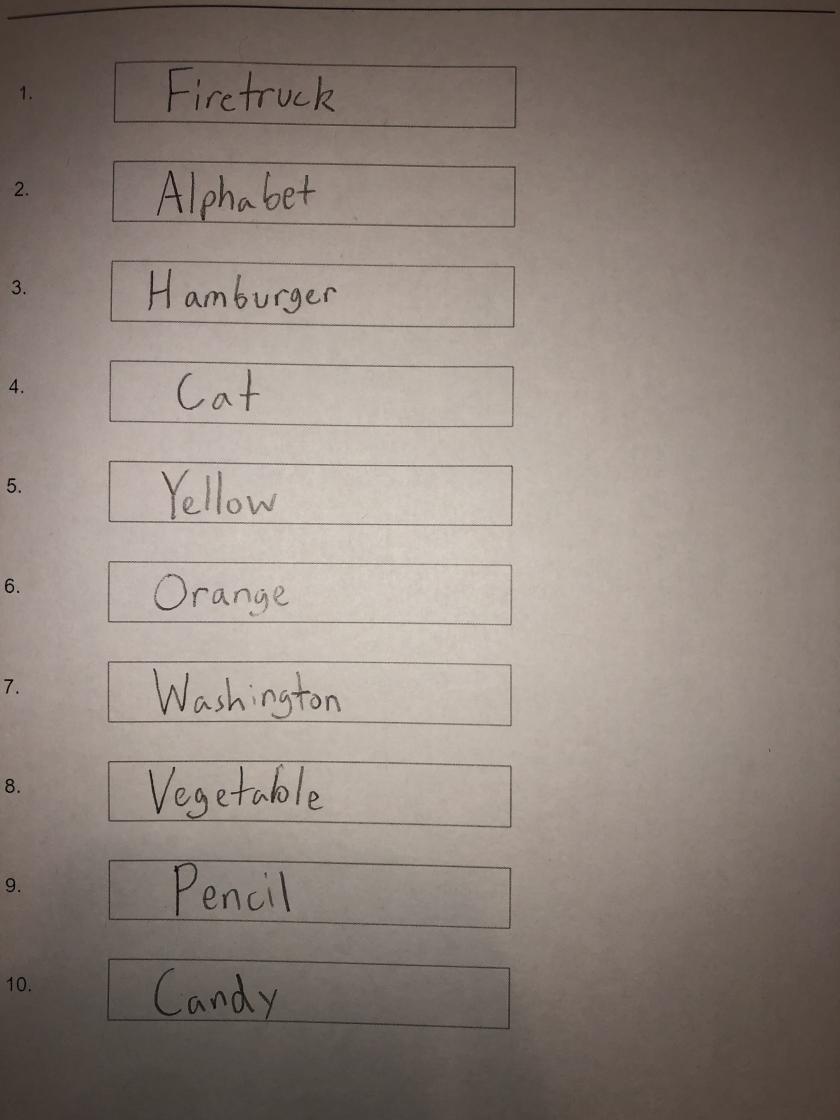 1. Firetruck
2. Alphabet
3. Hamburger
4. Cat
5. Yellow
6. Orange
7. Washington
8. Vegetable
9. Pencil
10. Candy